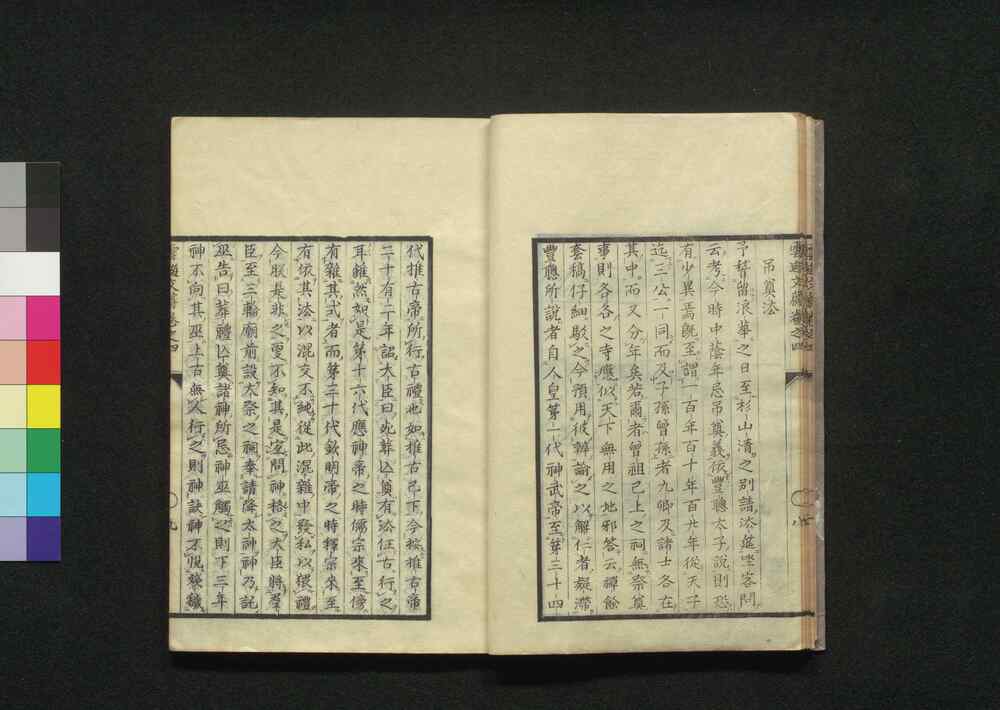 吊奠法
予替留浪華之日至杉山清之別請法筵坐客問
云考今時中蔭年忌吊奠義依豐聰太子說則恐
有少異焉既至謂一百年百十年百廿年從天子
迄三公一同而又子孫曾孫者九卿及諸士各在
其中而又分年矣若爾者曾祖已上之祠無祭奠
事則各各之寺應似天下無用之地邪答云禪餘
套稿仔細駁之今預用彼辨論之以解仁者凝滯
豐聰所說者自人皇第一代神武帝至第三十四
代推古帝所行古禮也如推古已下今按推古帝
二十有二年詔大臣曰死葬亾奠有法任古行之
耳雖然如是第十六代應神帝之時儒宗來至傍
有雜其式者而第三十代欽明帝之時釋宗來至
有依其法以混交不純從此混雜中發私以猥禮
今取是非之更不知其是客問神格之大臣時登
臣至三輪廟前設大祭之祠奉請降太神神乃託
巫告曰葬禮亾奠諸神所忌神巫觸之則下三年
神不向其巫上古無人行之則神訣神不悅祭穢